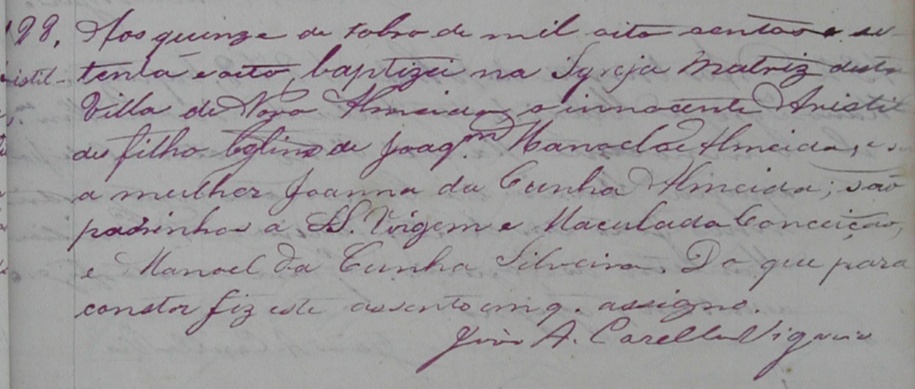 198. Aos quinze de 7bro de mil oito centos e se
tenta e oito, baptizei na Igreja Matriz desta
Villa de Nova Almeida, o innocente Aristi
des filho legitimo de Joaqm Manoel de Almeida, e su
a mulher Joanna da Cunha Almeida; são
padrinhos a SS. Virgem e Maculada Conceição,
e Manoel da Cunha Silveira. Do que para
constar fiz este assento em q. assigno.
João A. Carella Vigario